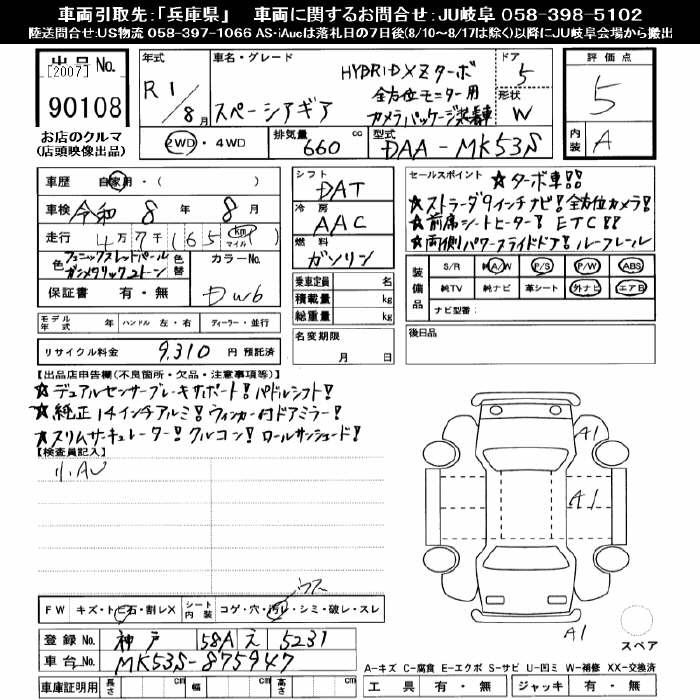 車両引取先:「兵庫県」 車両に関するお問合せ:JU岐阜 058-398-5102
陸送問合せ:US物流 058-397-1066 AS・iAucは落札日の7日後(8/10～8/17は除く)以降にJU岐阜会場から搬出
出品No.
[2007]
90108
お店のクルマ
(店頭映像出品)
年式
R1/8月
車名・グレード
スペーシアギア
HYBRID XZターボ
全方位モニター用
カメラパッケージ装着車
ドア
5
形状
W
評価点
5
内装
A
2WD・4WD
排気量
660 cc
型式
DAA-MK53S
車歴
自家用・( )
車検
令和 8年 8月
走行
4万7千(165 km マイル)
色
フェニックスレッドパール
ガンメタリック2トーン
色替
カラーNo.
DW6
保証書 有・無
シフト
DAT
冷房
AAC
燃料
ガソリン
乗車定員 名
積載量 kg
総重量 kg
セールスポイント
☆ターボ車!!
☆ストラーダ9インチナビ!全方位カメラ!
☆前席シートヒーター! ETC!!
☆両側パワースライドドア!ルーフレール
装備品
S/R 純A/W P/S P/W ABS
純TV 純ナビ 革シート 外ナビ エアB
ナビ型番:
モデル年式 年 ハンドル 左・右 ディーラー・並行
名変期限
月 日
後日品
リサイクル料金 9,310 円 預託済
【出品店申告欄(不良箇所・欠品・注意事項等)】
☆デュアルセンサーブレーキサポート!パドルシフト!
☆純正14インチアルミ!ウィンカー付ドアミラー!
☆スリムサーキュレーター!クルコン!ロールサンシェード!
【検査員記入】
A1
A1
A1
FW キズ・トビ石・割レX
シート内装 コゲ・穴・汚レ・シミ・破レ・スレ
ウス
登録No. 神戸 58A え 5231
車台No. MK53S-875947
車庫証明用 長さ cm 幅 cm 高さ cm
スペア
A-キズ C-腐食 E-エクボ S-サビ U-凹ミ W-補修 XX-交換済
工具 有・無 ジャッキ 有・無